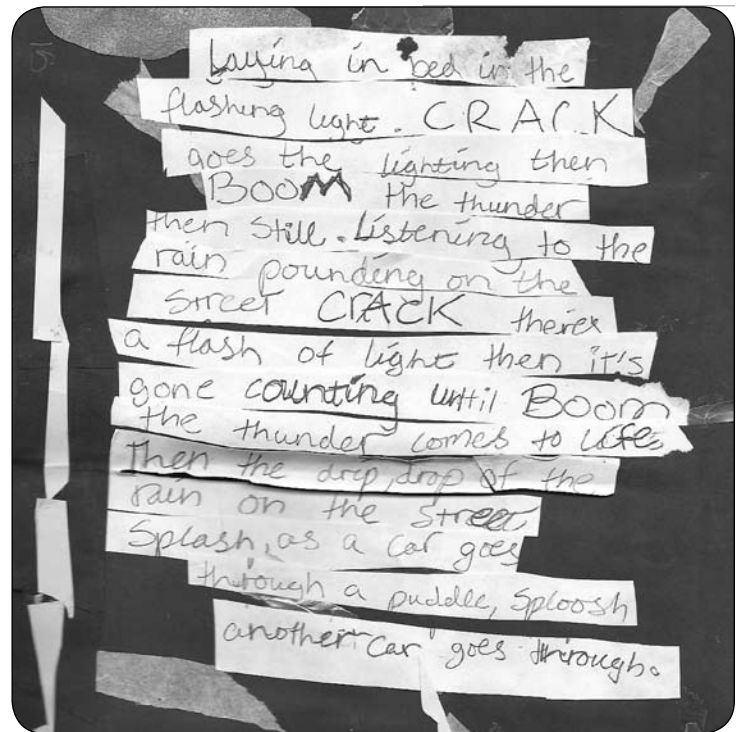 Laying in bed in the
flashing light. CRACK
goes the lighting then
BOOM the thunder
then still. Listening to the
rain pounding on the
street CRACK theres
a flash of light then it's
gone counting until BOOM
the thunder comes to life.
Then the drip, drop of the
rain on the street
Splash, as a car goes
through a puddle, Sploosh
another car goes through.